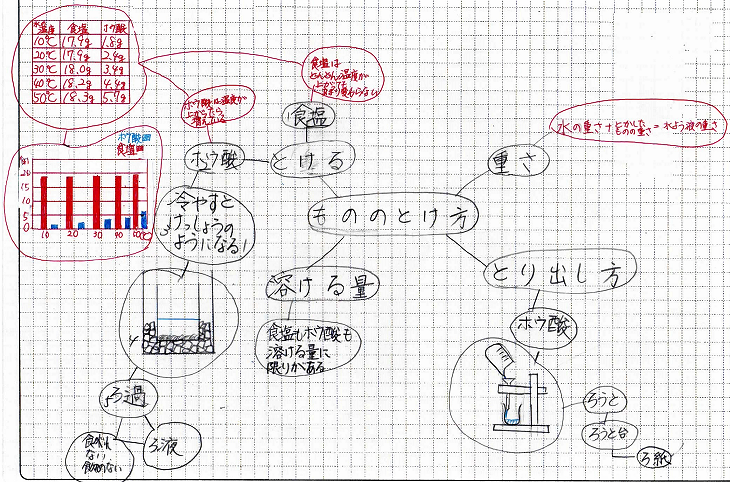 水温度 食塩 ホウ酸
10℃ 17.9g 1.8g
20℃ 17.9g 2.4g
30℃ 18.0g 3.4g
40℃ 18.2g 4.4g
50℃ 18.3g 5.7g
食塩は
どんどん温度が
上がっても
あまり変わらない
ホウ酸は温度が
上がったら
増えてる
食塩
ホウ酸
とける
重さ
水の重さ+とかした
ものの重さ=水よう液の重さ
ホウ酸
食塩
(g)
20
15
10
5
0
10 20 30 40 50(℃)
冷やすと
けっしょうの
ようになる!
もののとけ方
溶ける量
食塩もホウ酸も
溶ける量に
限りがある
とり出し方
ホウ酸
ろうと
ろうと台
ろ紙
ろ過
ろ液
ない